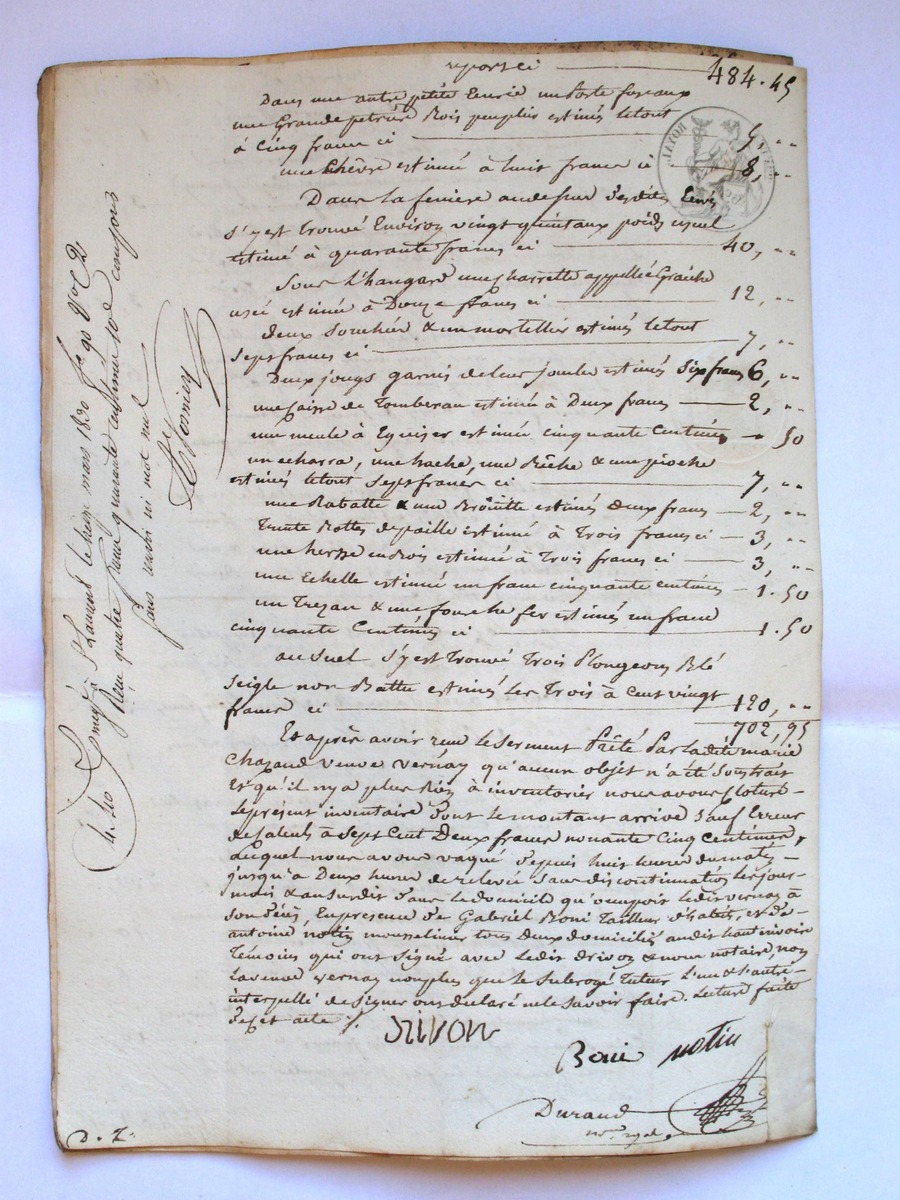 report ci 484.45
Dans une autre petite Ecurie un Coste fuseaux
une Grande petrière Bois peuplier estimés letout
à Cinq francs ci 5, ..
une Chèvre estimée à huit francs ci 8, ..
Dans la feniere audessus desdites Ecuries
s'y est trouvé Environ vingt quintaux poids usuel
estimé à quarante francs ci 40, ..
Sous L'hangard une Charrette appellée
usée estimée à Douze francs ci 12, ..
deux & un mortellier estimés letout
Sept francs ci 7, ..
Deux jougs garnis de leur joucles estimés Six francs 6, ..
une Caisse de Tomberau estimée à Deux francs 2, ..
une meule à Eguiser estimée cinquante Centimes .. 50
un echarra, une hache, une Bêche & une pioche
estimés letout Sept francs ci 7, ..
une Rabatte & une Broüitte estimés deux francs 2, ..
Trente Bottes de paille estimé à Trois francs ci 3, ..
une hersse en bois estimée à Trois francs ci 3, ..
une Echelle estimée un franc cinquante centimes 1.50
un Trezan & une fourche fer estimés un franc
cinquante Centimes ci 1.50
au Suel s'y est Trouvé Trois Plongeons Blé
Seigle non Battu estimés les Trois à Cent vingt
francs ci 120, ..
702,95
Et après avoir reçu le serment Prêté Par ladite marie
Chazaud veuve vernay qu'aucun objet n'a été Soustrait
Et qu'il n'y a plus Rien à inventorier nous avons Cloturé
leprésent inventaire Dont le montant arrive Sauf Erreur
de Calculs à Sept Cent Deux francs nonante Cinq Centimes,
auquel nous avons vaqué Depuis huit heures du matin
jusqu'à Deux heures de relevée Sans discontinuation les jour
mois & an susdits dans le domicile qu'occupoit ledit vernay à
son décès, En présence de Gabriel Boni Tailleur d'habits, et d'
antoine notin mousselinier tous Deux domiciliés audit
Témoins qui ont Signé avec Ledit drivon & nous notaire, non
La veuve vernay nonplus que le Subrogé Tuteur l'un & l'autre
interpellé de Signer ont déclaré ne le Savoir faire. Lecture faite
Desdit acte ./.
Drivon
Boni notin
Durand
not. royal
D. Z.
Enreg. à St. Laurent le mars 1830 f° 90 V° C 2
Reçu quatre francs quarante centimes 10e compris
sans renvoi ni mot nul
4.40